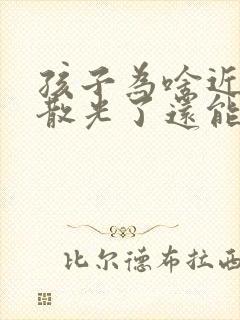 孩子為啥近
散光了還能
比尔德布拉西